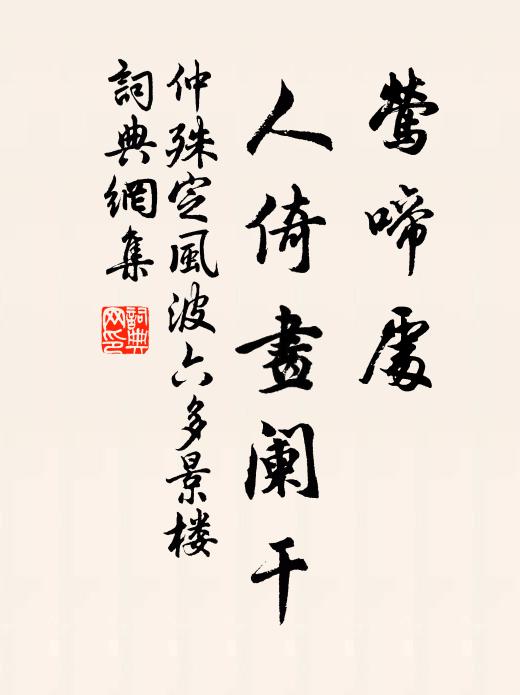 莺啼處
人倚畫阑干
仲殊定風波六多景楼
詞典網集
詞典网印